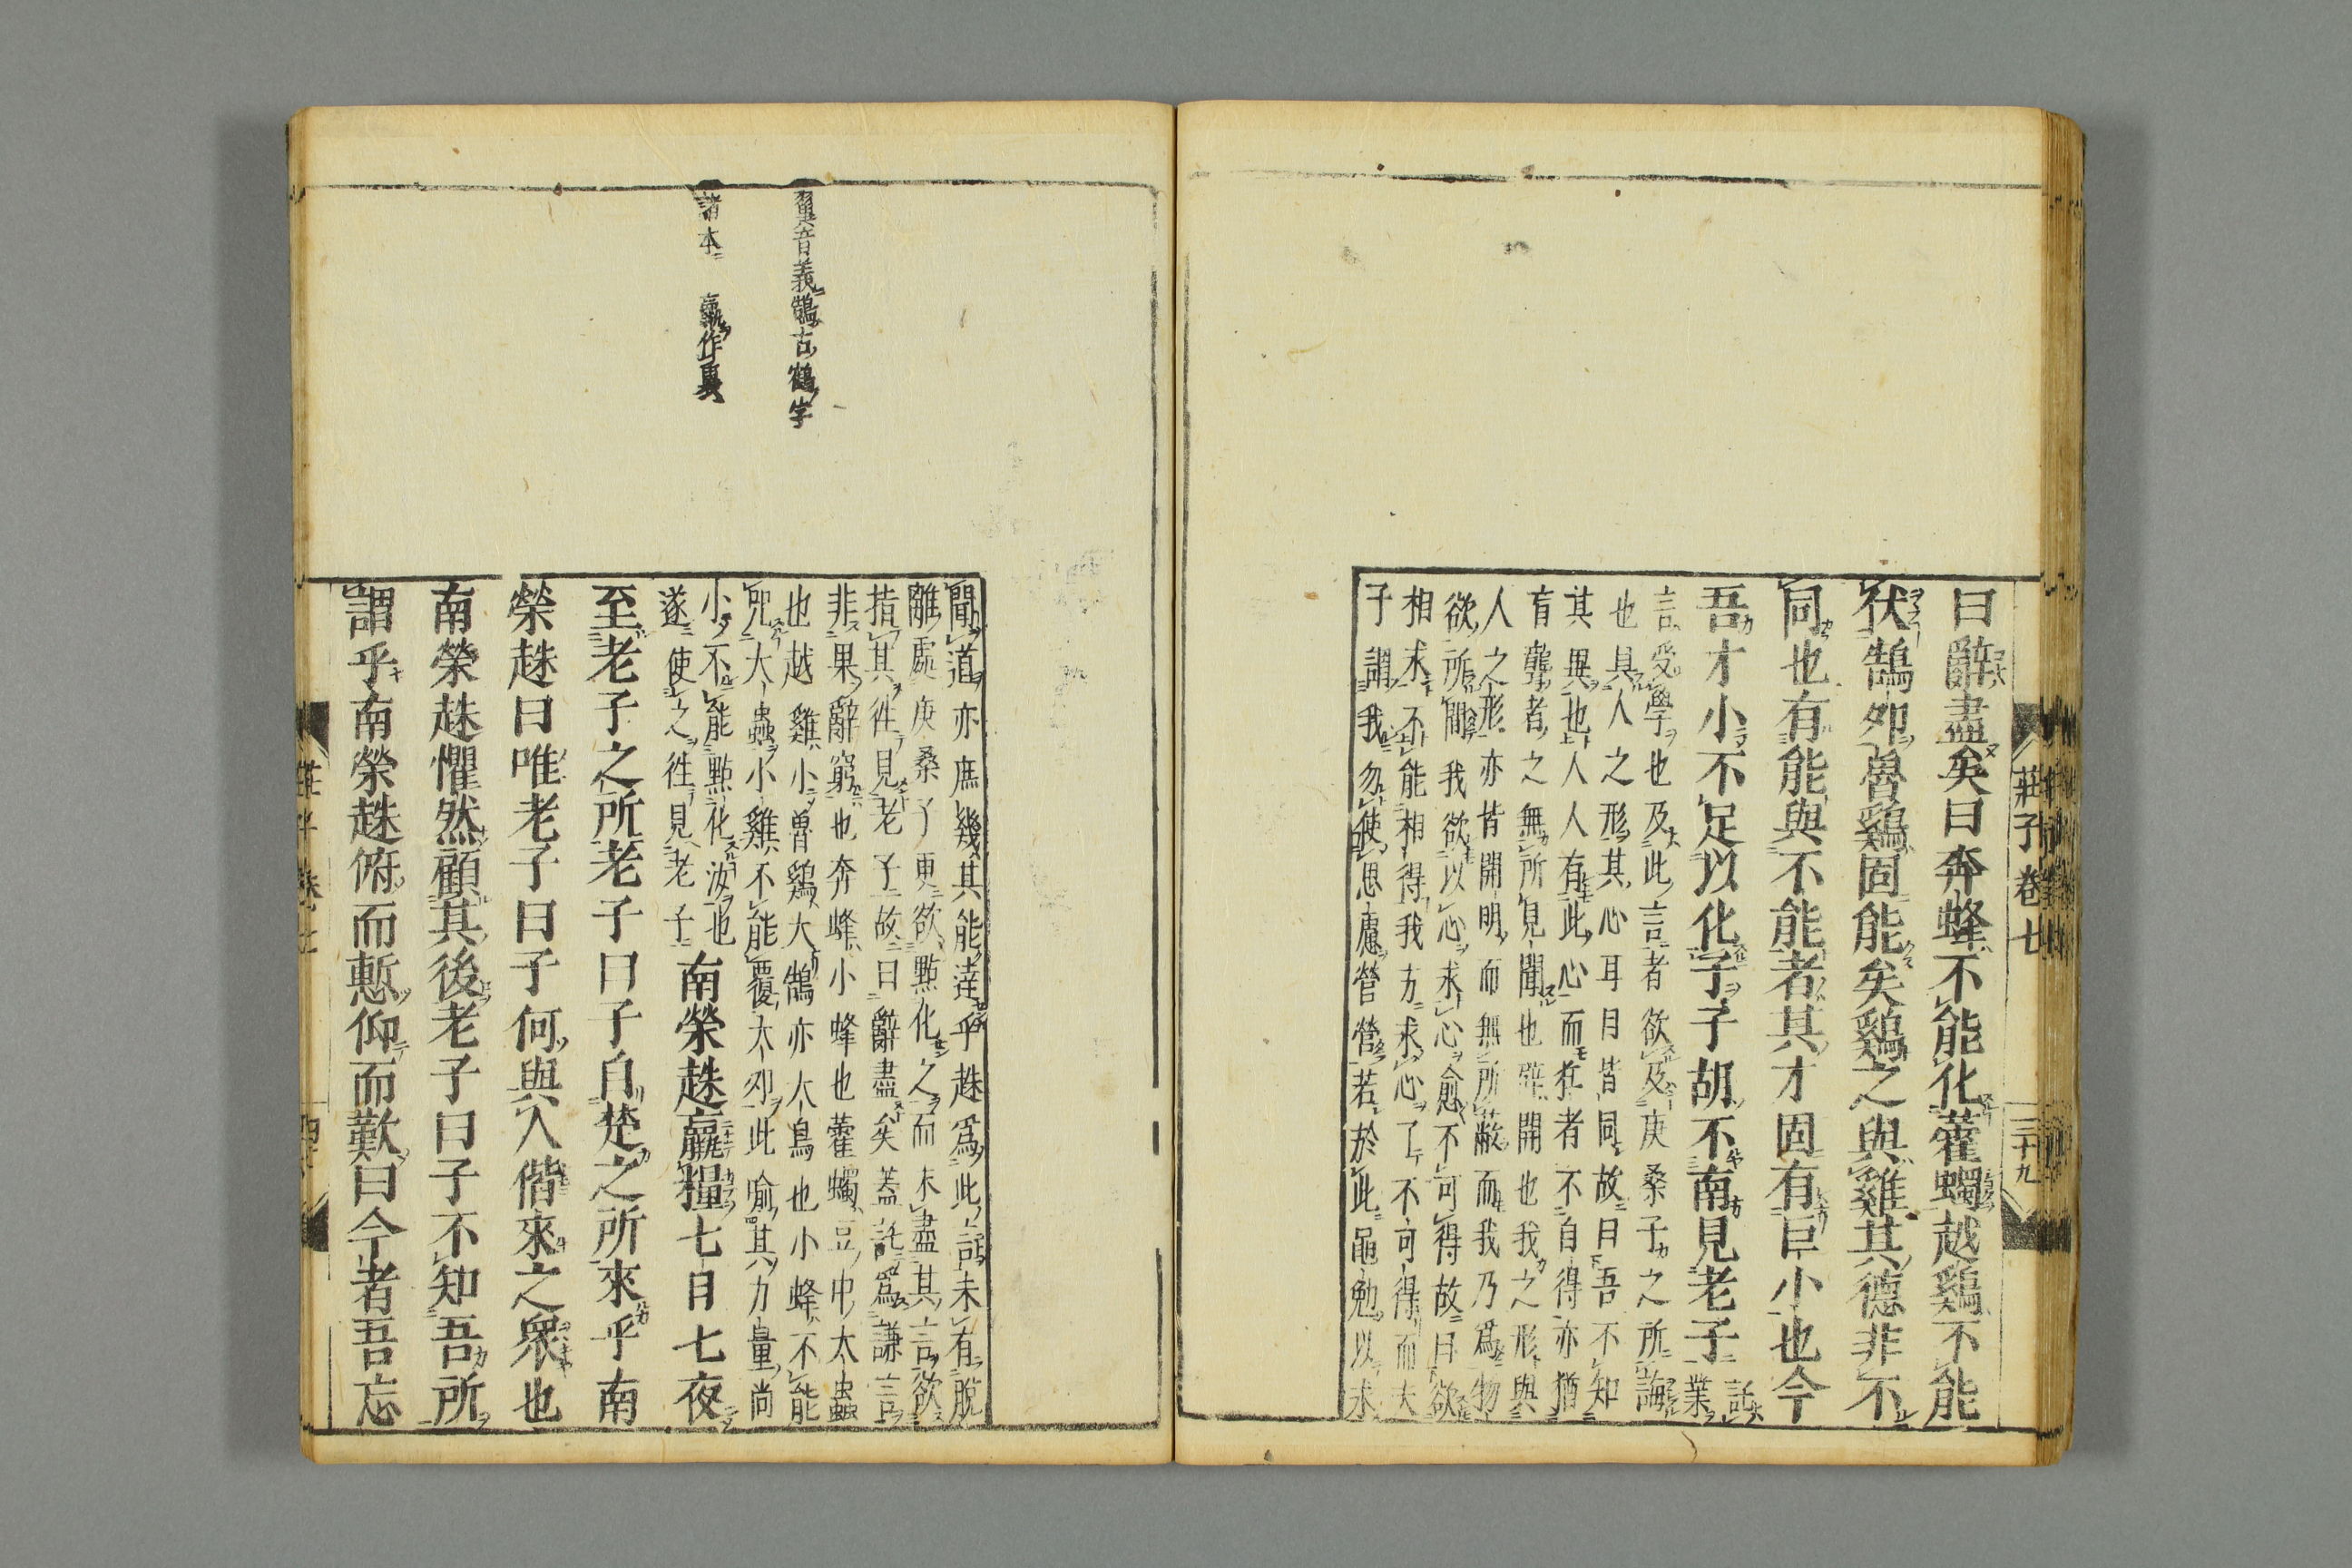 莊子卷七
三十九
曰辭盡矣曰奔蜂不能化藿蠋越鷄不能
伏鵠卵魯鷄固能矣鷄之與雞其德非不
同也有能與不能者其才固有巨小也今
吾才小不足以化子子胡不南見老子託業
言受學也及此言者欲及庚桑子之所誨
也具人之形其心耳目皆同故曰吾不知
其異也人人有此心而狂者不自得亦猶
盲聾者之無所見聞也辟開也我之形與
人之形亦皆開明而無所蔽而我乃爲物
欲所間我欲以心求心愈不可得故曰欲
相求不能相得我方求心了不可得而夫
子謂我勿使思慮營營若於此黽勉以求
聞道亦庶幾其能達乎趎爲此言未有脫
離處庚桑子更欲點化之而未盡其言欲
指其徃見老子故曰辭盡矣蓋託爲謙言
非果辭窮也奔蜂小蜂也藿蠋豆中大蟲
也越雞小魯鷄大鵠亦大鳥也小蜂不能
咒大蟲小雞不能覆大卵此喻其力量尚
小不能點化汝也
遂使之徃見老子
南榮趎贏糧七日七夜
至老子之所老子曰子自楚之所來乎南
榮趎曰唯老子曰子何與人偕來之衆也
南榮趎懼然顧其後老子曰子不知吾所
謂乎南榮趎俯而慙仰而歎曰今者吾忘
翼音義鵠古鶴字
諸本